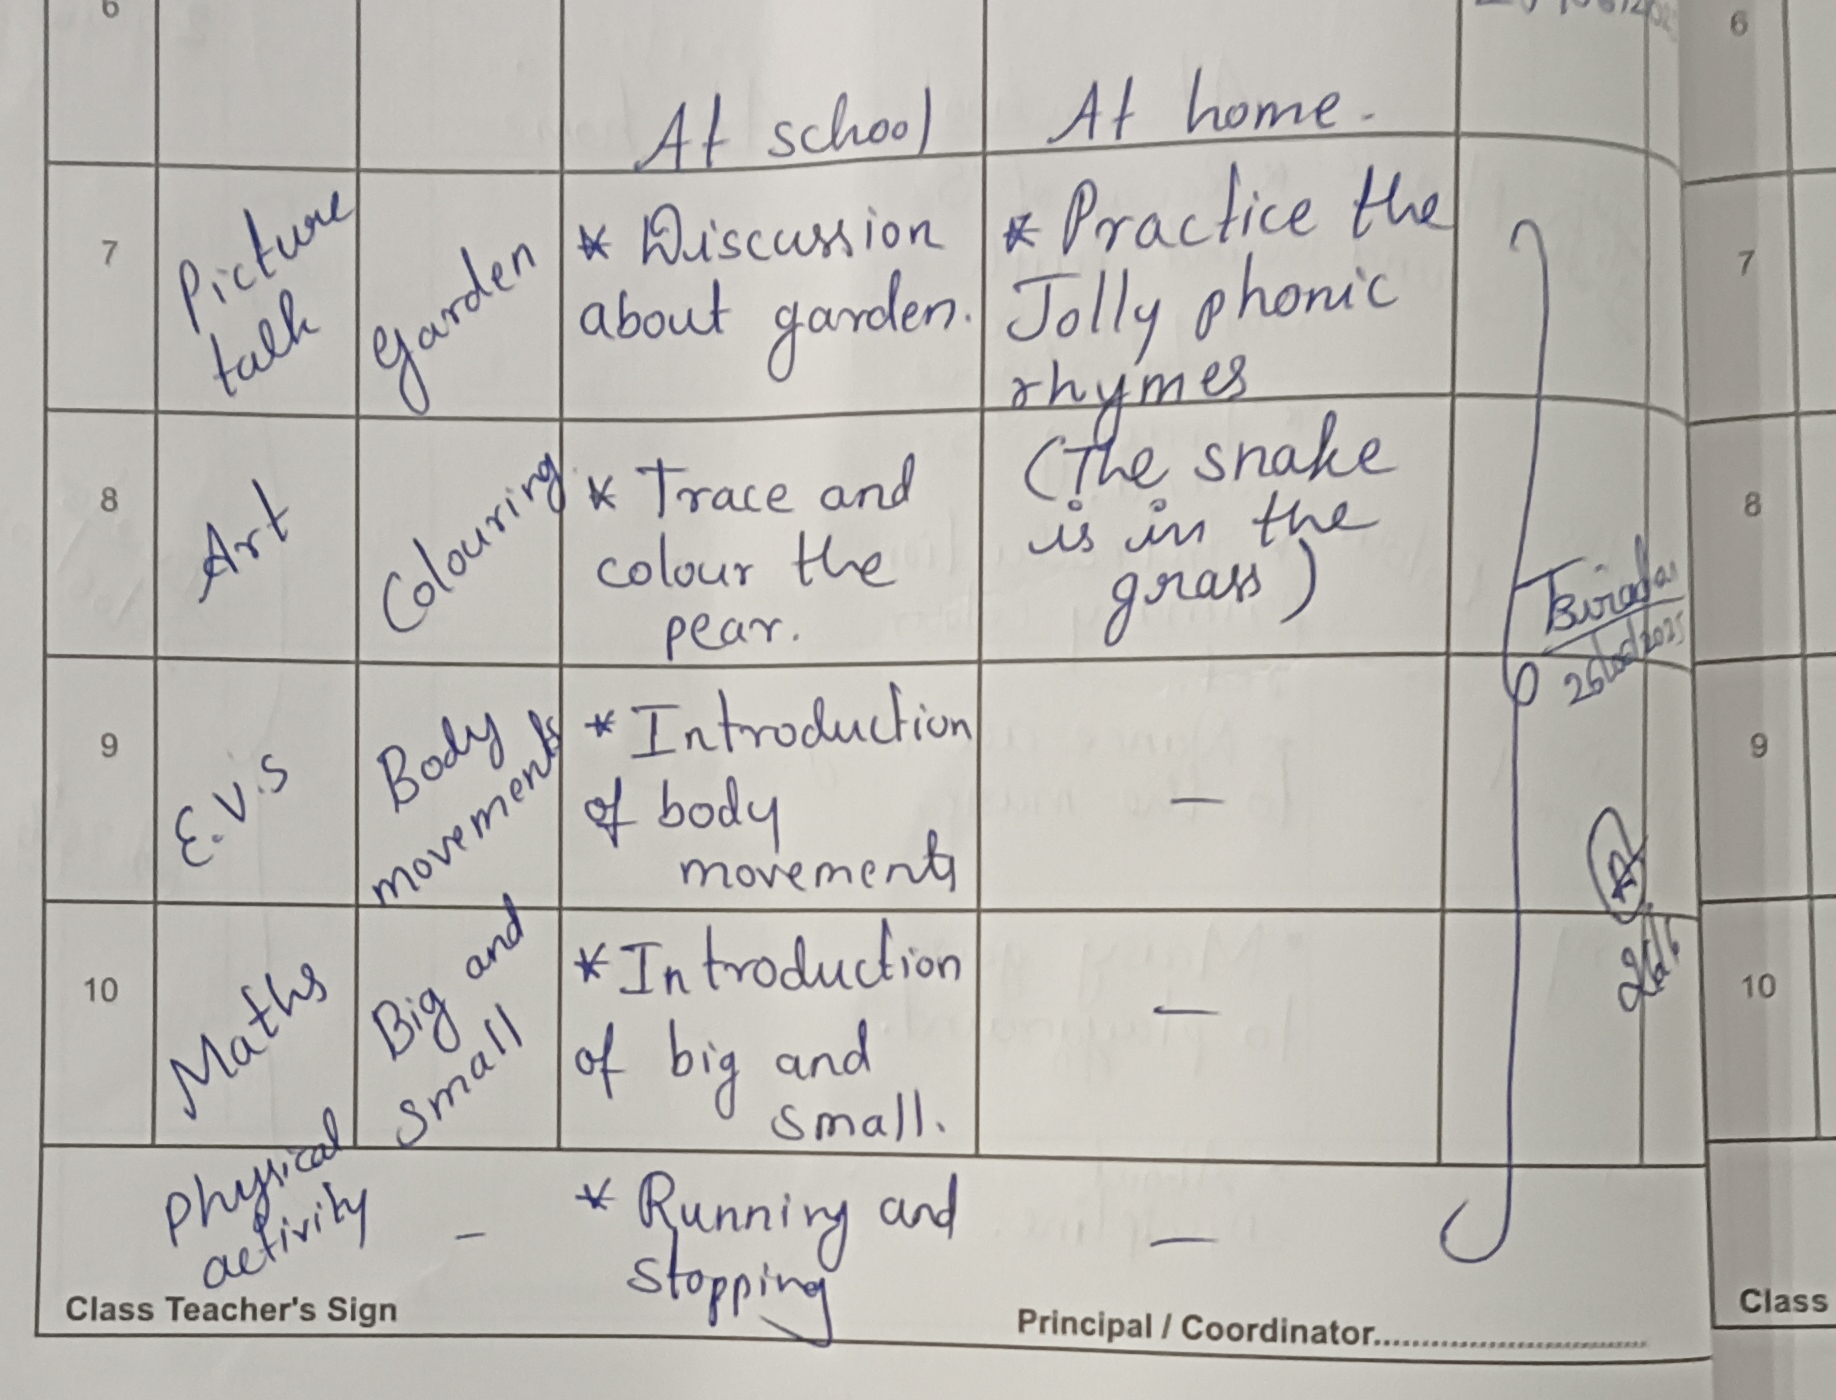 6
6
At school
At home.
7
Picture
talk
Garden
* Discussion
about garden.
* Practice the
Jolly phonic
rhymes
7
8
Art
Colouring
* Trace and
colour the
pear.
(The snake
is in the
grass)
8
9
E.V.S
Body
movements
* Introduction
of body
movements
—
9
10
Maths
Big and
Small
* Introduction
of big and
small.
—
10
Physical
activity
—
* Running and
Stopping
—
Class Teacher's Sign
Principal / Coordinator
Class